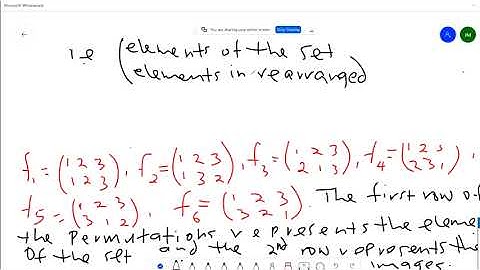 Microsoft Whiteboard
You are sharing your entire screen
Stop Sharing
i.e (elements of the set
(elements in rearranged)
f1 = (1 2 3), f2 = (1 2 3), f3 = (1 2 3), f4 = (1 2 3),
(1 2 3) (1 3 2) (2 1 3) (2 3 1)
f5 = (1 2 3), f6 = (1 2 3). The first row of
(3 1 2) (3 2 1)
the permutations represents the eleme
Of the set and the 2nd row represents the
images.